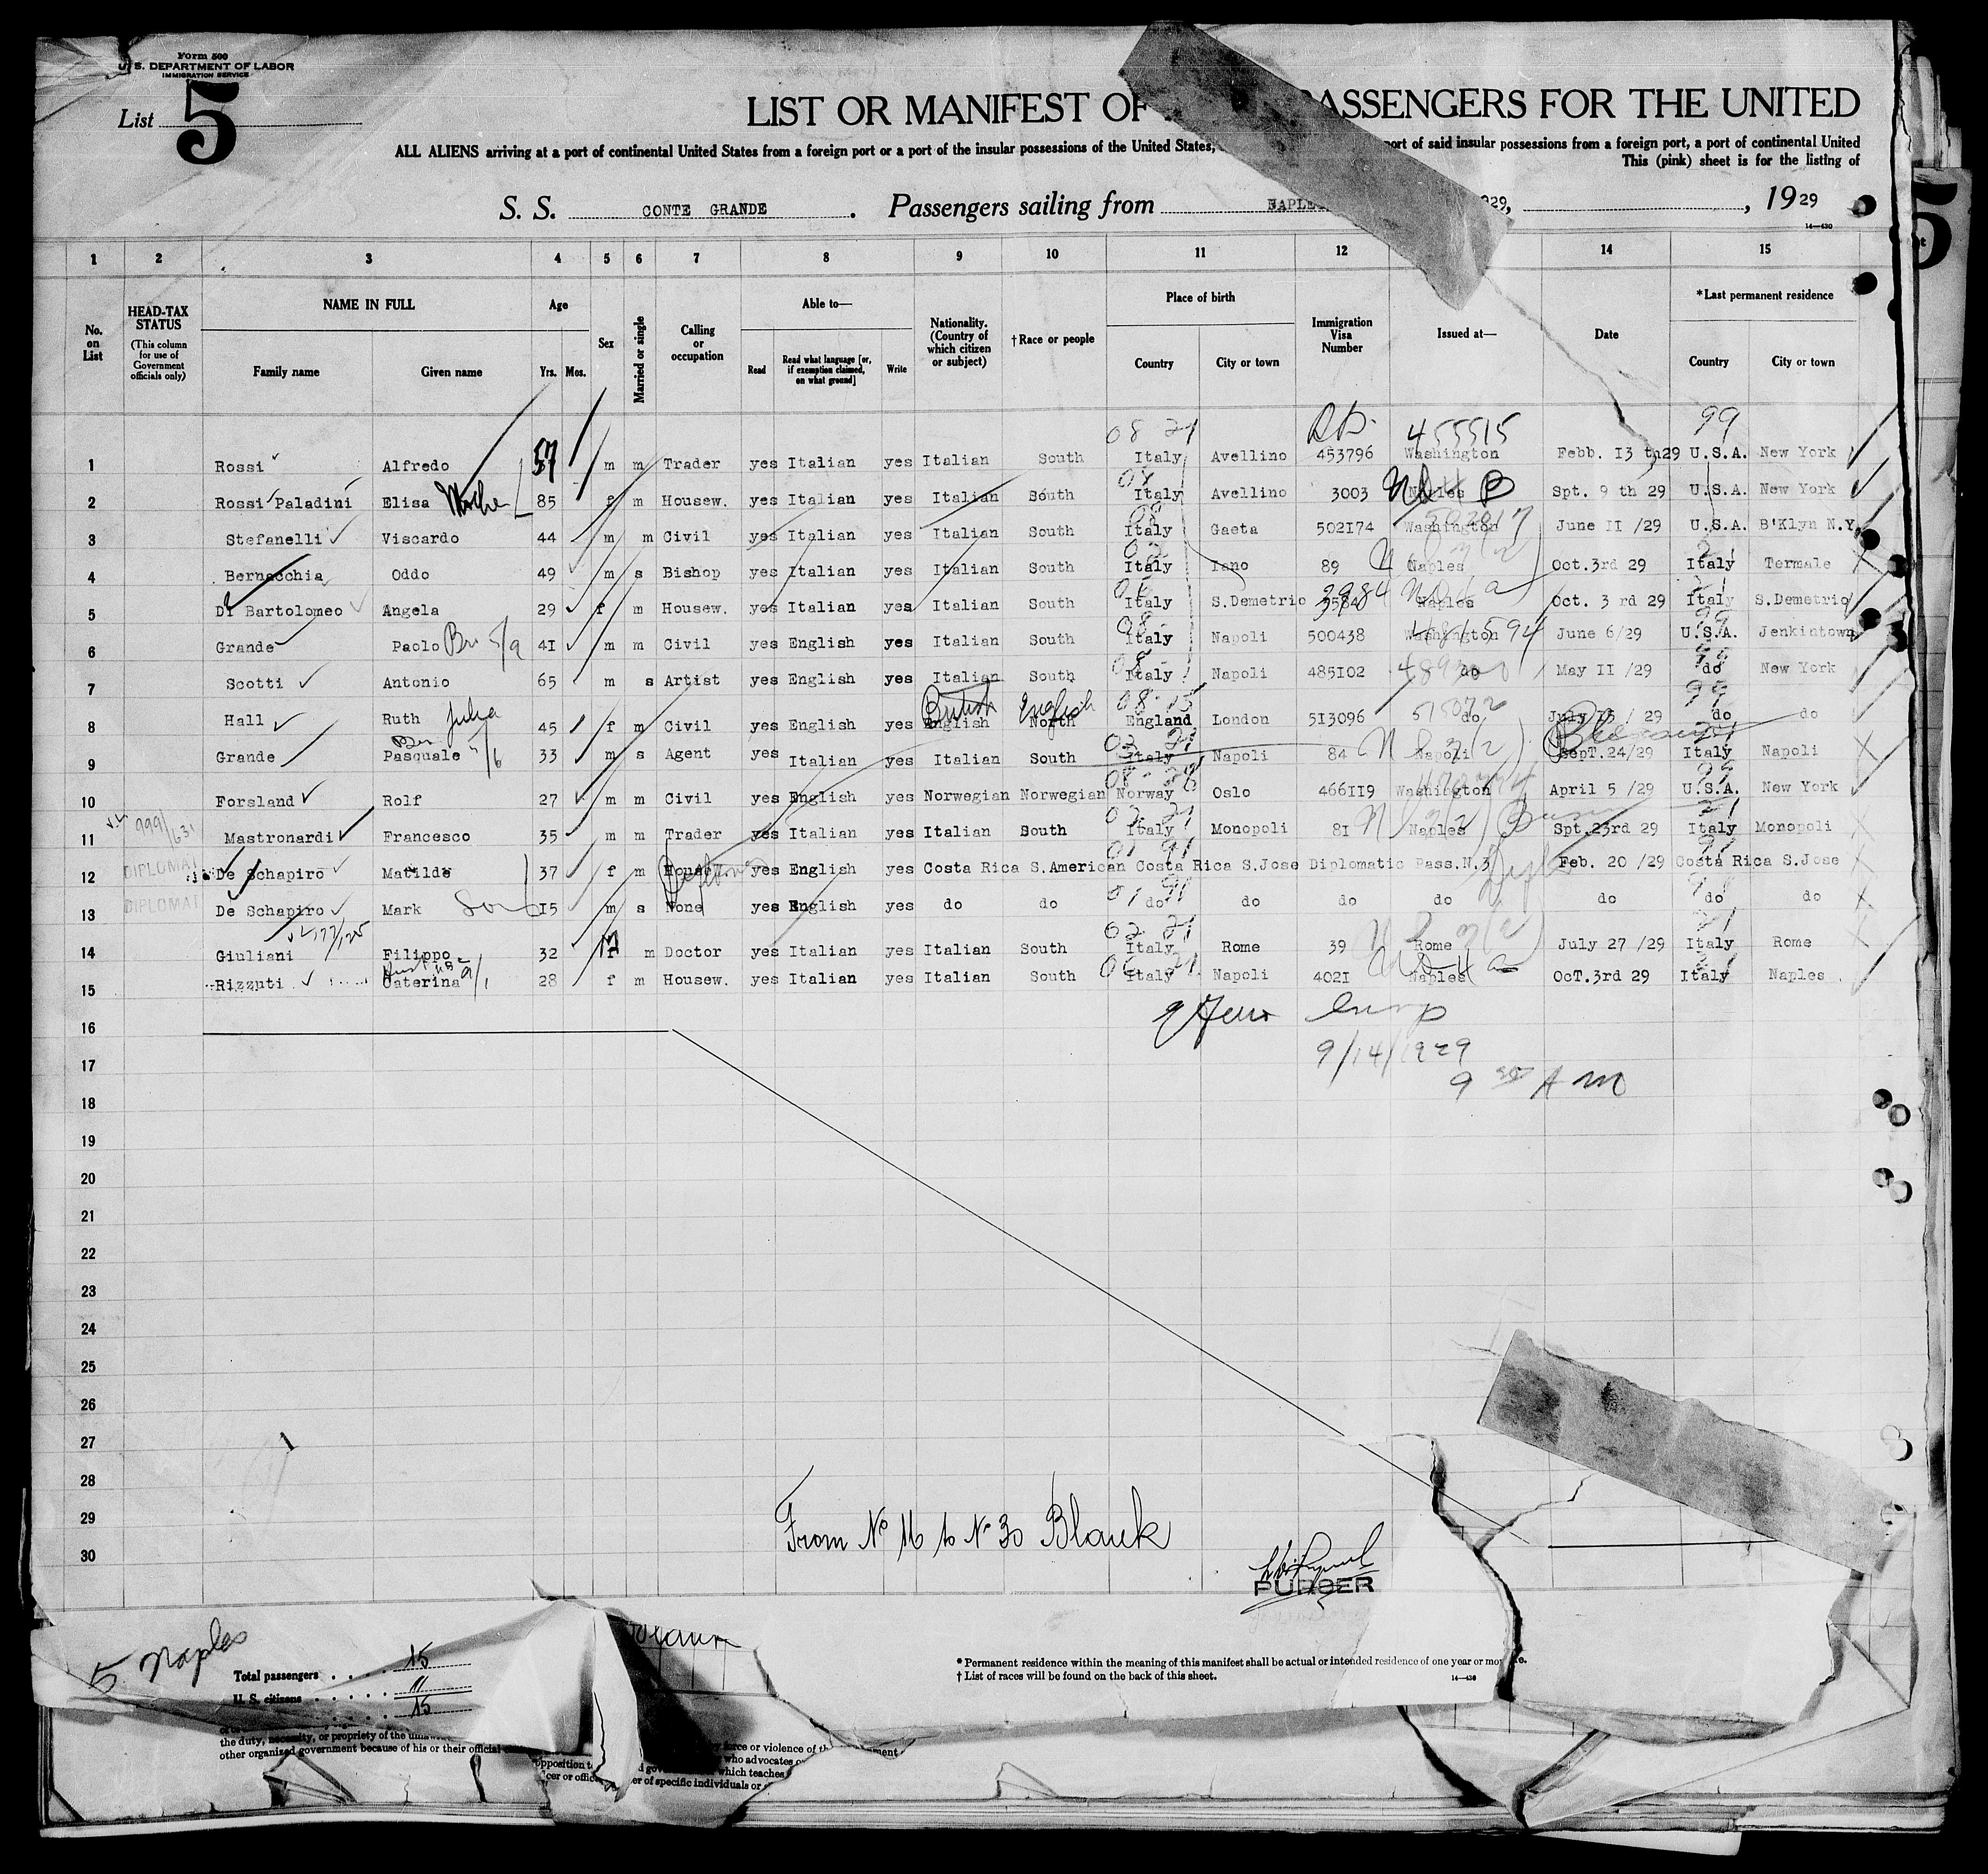 Form 500
U. S. DEPARTMENT OF LABOR
IMMIGRATION SERVICE
List 5
LIST OR MANIFEST OF PASSENGERS FOR THE UNITED
ALL ALIENS arriving at a port of continental United States from a foreign port or a port of the insular possessions of the United States, port of said insular possessions from a foreign port, a port of continental United
This (pink) sheet is for the listing of
S. S. CONTE GRANDE . Passengers sailing from NAPLES 29, , 19 29
14—430
1 2 3 4 5 6 7 8 9 10 11 12 14 15
No. on List
HEAD-TAX STATUS (This column for use of Government officials only)
NAME IN FULL Family name Given name
Age Yrs. Mos.
Sex
Married or single
Calling or occupation
Able to— Read Read what language [or, if exemption claimed, on what ground] Write
Nationality. (Country of which citizen or subject)
† Race or people
Place of birth Country City or town
Immigration Visa Number
Issued at—
Date
* Last permanent residence Country City or town
08 21 455515 99
1 Rossi Alfredo 57 m m Trader yes Italian yes Italian South Italy Avellino 453796 Washington Febb. 13 th29 U.S.A. New York
2 Rossi Paladini Elisa Mother 85 f m Housew. yes Italian yes Italian South Italy Avellino 3003 Naples Spt. 9 th 29 U.S.A. New York
3 Stefanelli Viscardo 44 m m Civil yes Italian yes Italian South Italy Gaeta 502174 Washington June 11 /29 U.S.A. B'Klyn N.Y.
4 Bernacchia Oddo 49 m s Bishop yes Italian yes Italian South Italy Iano 89 Naples Oct.3rd 29 Italy Termale
5 Di Bartolomeo Angela 29 f m Housew. yes Italian yes Italian South Italy S.Demetrio 3984 Naples Oct. 3 rd 29 Italy S.Demetrio
6 Grande Paolo 41 m m Civil yes English yes Italian South Italy Napoli 500438 Washington June 6/29 U.S.A. Jenkintown
7 Scotti Antonio 65 m s Artist yes English yes Italian South Italy Napoli 485102 do May 11 /29 do New York
8 Hall Ruth Julia 45 f m Civil yes English yes English British North English England London 513096 do July 15 / 29 do do
9 Grande Pasquale 33 m s Agent yes Italian yes Italian South Italy Napoli 84 Napoli SepT.24/29 Italy Napoli
10 Forsland Rolf 27 m m Civil yes English yes Norwegian Norwegian Norway Oslo 466119 Washington April 5 /29 U.S.A. New York
11 999/631 Mastronardi Francesco 35 m m Trader yes Italian yes Italian South Italy Monopoli 81 Naples Spt.23rd 29 Italy Monopoli
12 DIPLOMAT De Schapiro Matilde 37 f m House yes English yes Costa Rica S.American Costa Rica S.Jose Diplomatic Pass.N.3 Feb. 20 /29 Costa Rica S.Jose
13 DIPLOMAT De Schapiro Mark Son 15 m s None yes English yes do do do do do do do do do
14 Giuliani Filippo 32 M m Doctor yes Italian yes Italian South Italy Rome 39 Rome July 27 /29 Italy Rome
15 Rizzuti Caterina 28 f m Housew. yes Italian yes Italian South Italy Napoli 4021 Naples OcT.3rd 29 Italy Naples
16
9/14/1929
17
9 30 A M
18
19
20
21
22
23
24
25
26
27
28
29
From No 16 to No 30 Blank
30
PURSER
5 Naples
Total passengers . . . . 15
U. S. citizens . . . . . "
15
* Permanent residence within the meaning of this manifest shall be actual or intended residence of one year or more.
† List of races will be found on the back of this sheet.
14—430
the duty, necessity, or propriety of the
other organized government because of his or their official
force or violence of the
who advocates
opposition to
which teaches
of specific individuals or